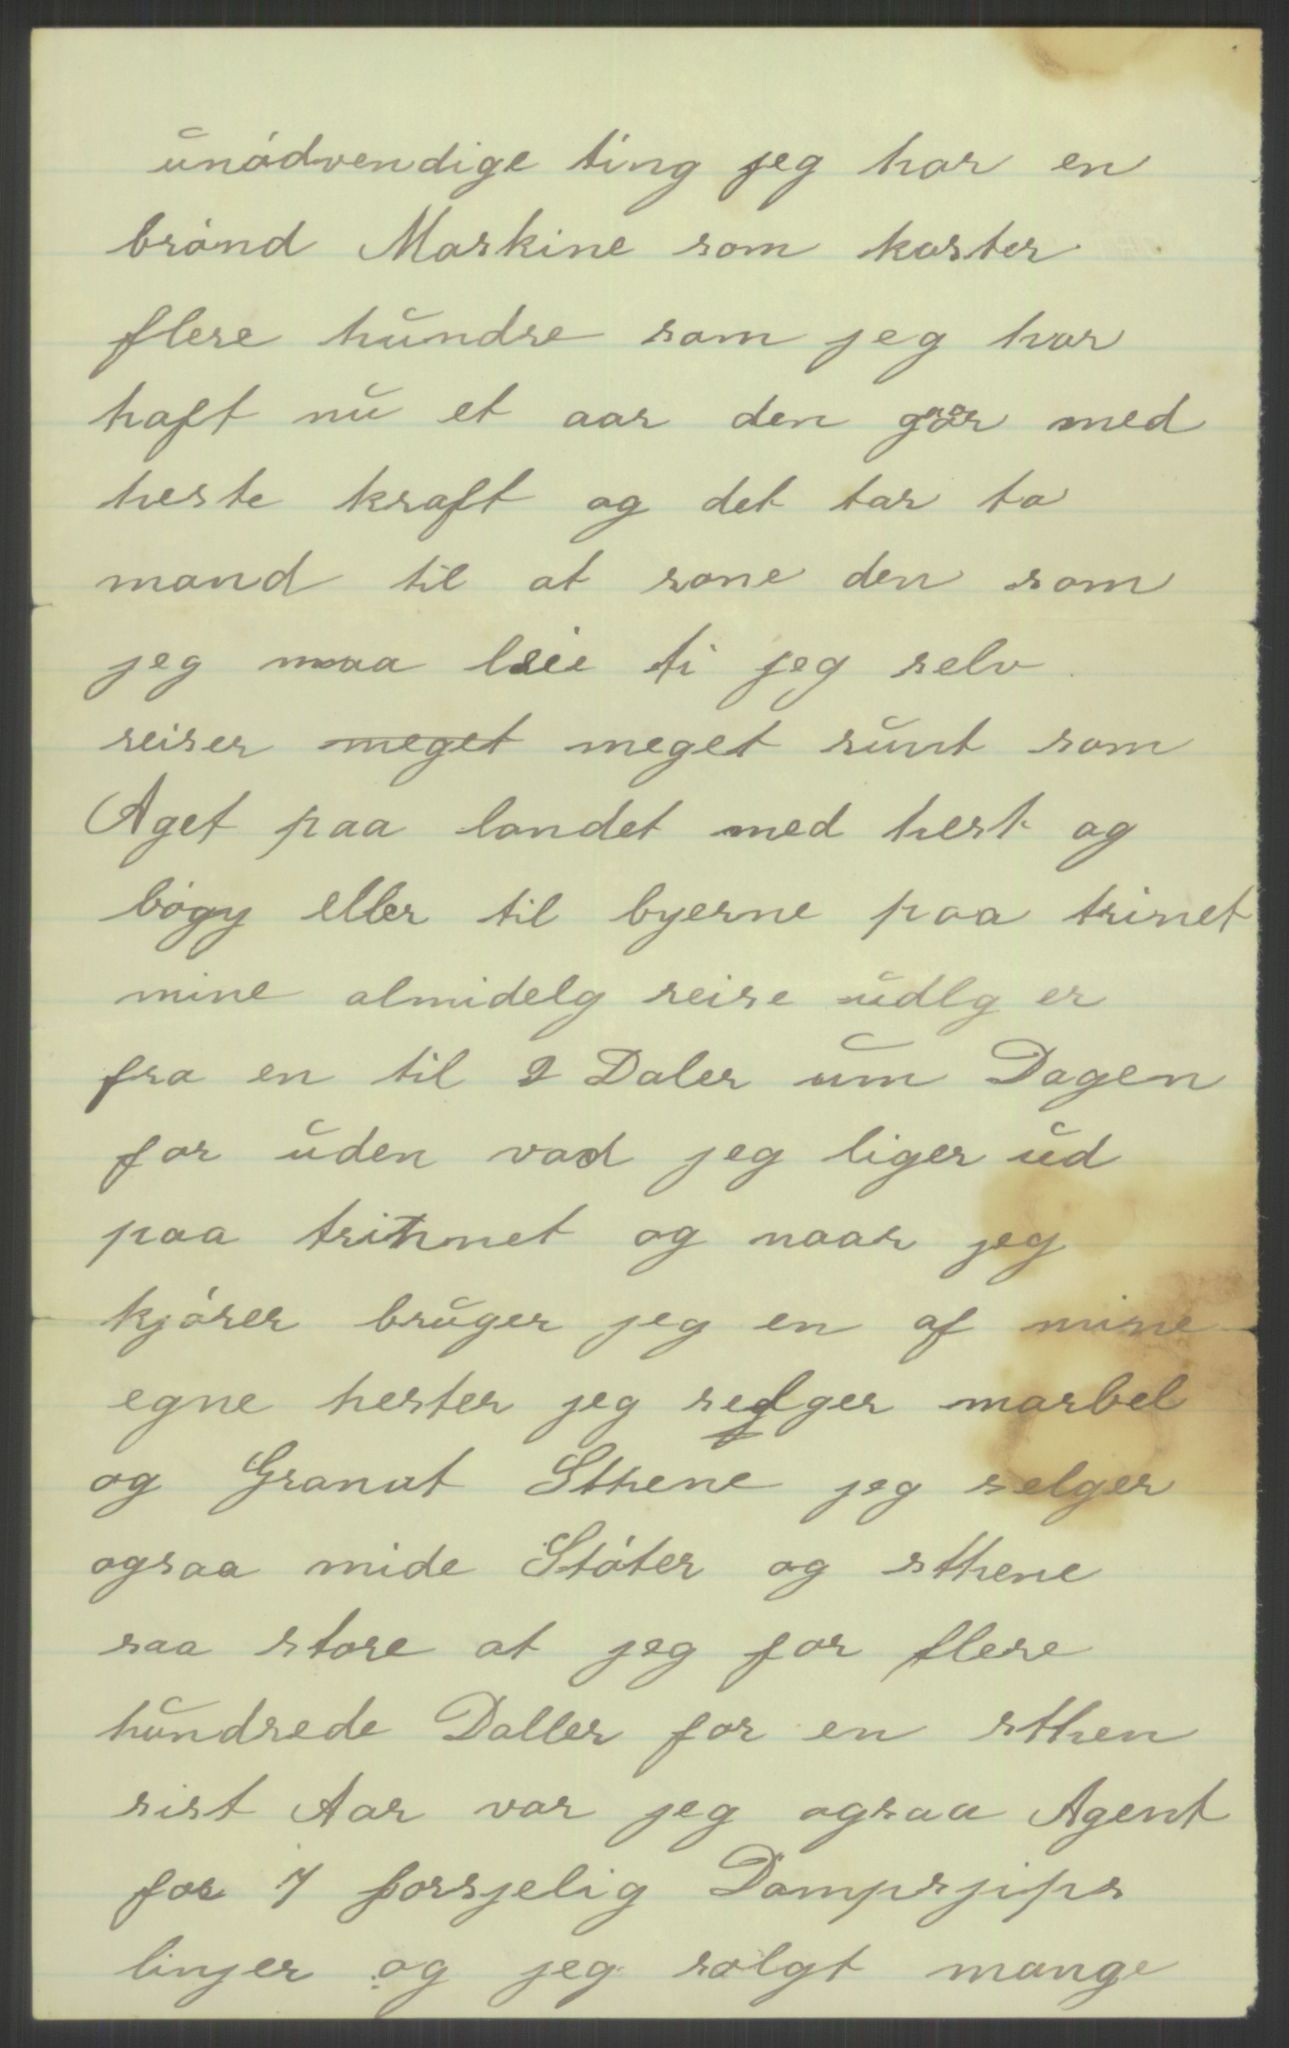 unódvendige ting jeg har en
brónd Maskine som koster
flere hundre som jeg har
haft nu et aar den gaar med
heste kraft og det tar to
mand til at rone den som
jeg maa leie ti jeg selv
reiser ~~meget~~ meget runt som
Aget paa landet med hest og
bógy eller til byerne paa trinet
mine almidelg reise udlg er
fra en til 2 Daler um Dagen
for uden vad jeg liger ud
paa trinnet og naar jeg
kjórer bruger jeg en af mine
egne hester jeg selger marbel
og Granut Sthene jeg selger
ogsaa mide Stóter og sthene
saa store at jeg for flere
hundrede Daller for en sthen
sist Aar var jeg ogsaa Agent
for 7 forsjelig Dampsjips
linjer og jeg solgt mange